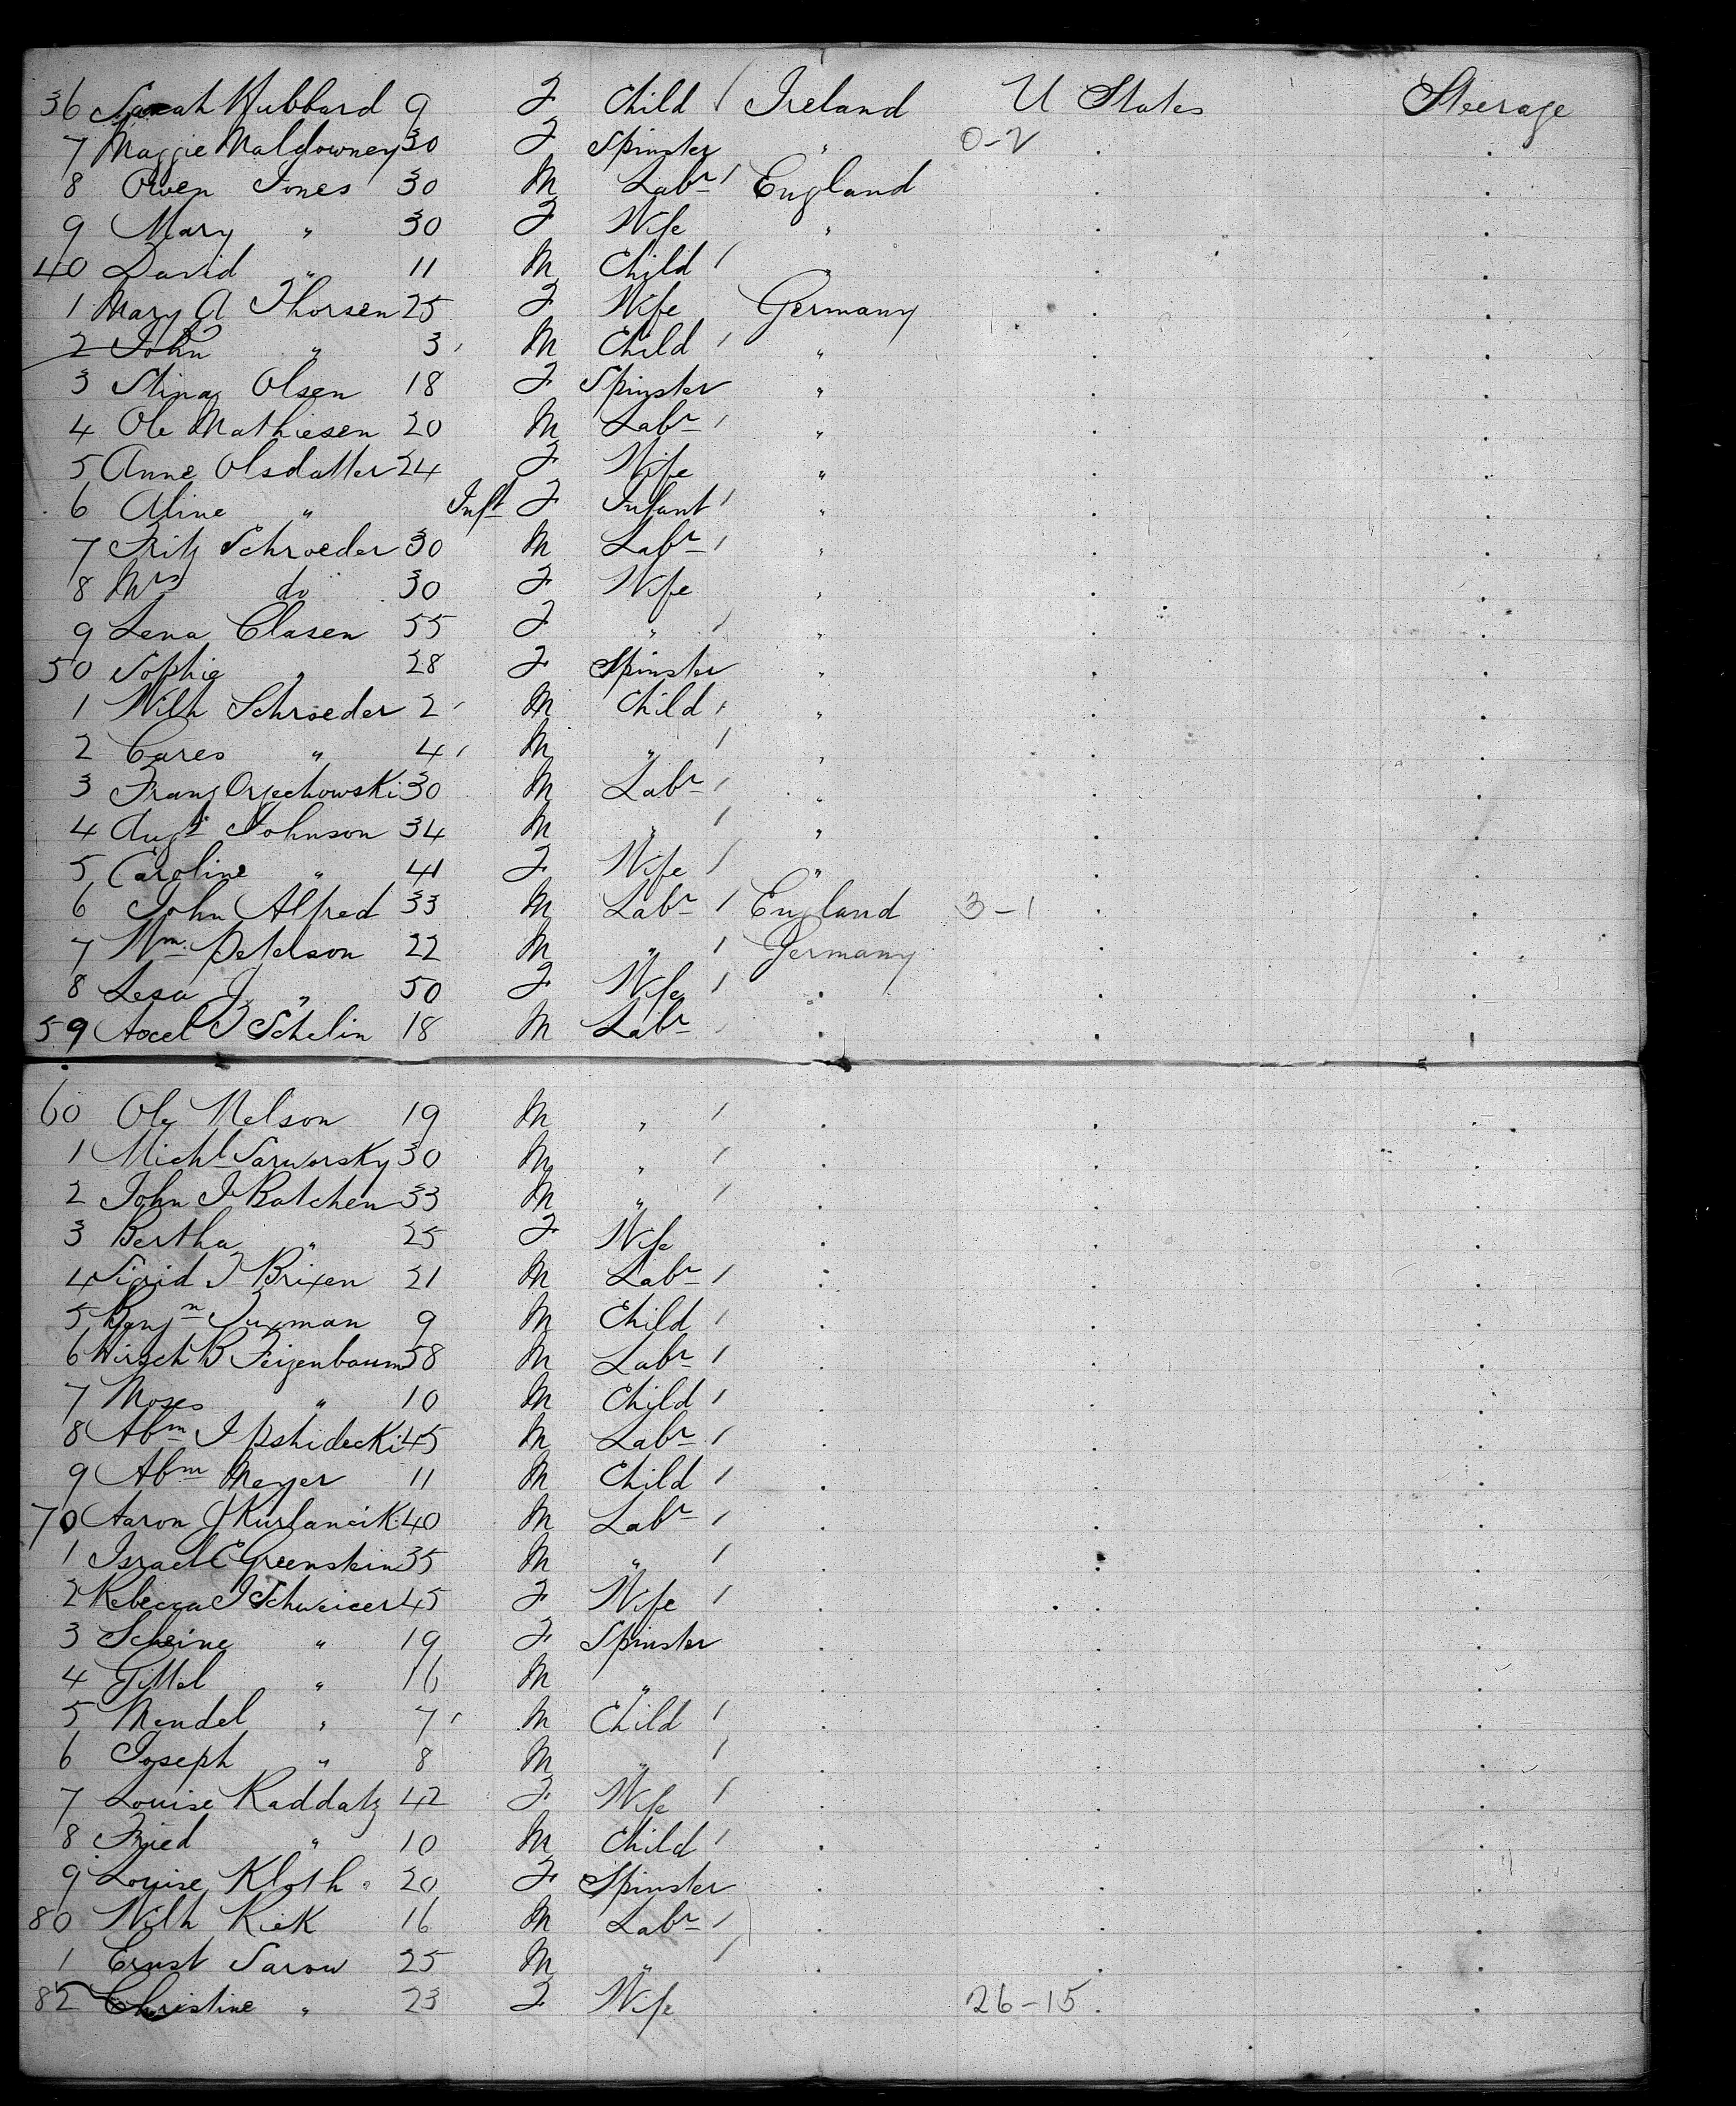 36 Sarah Hubbard 9 F Child / Ireland U States Steerage
7 Maggie Maldowney 30 F Spinster " 0-2 .
8 Owen Jones 30 M Labr / England .
9 Mary " 30 F Wife " .
40 David " 11 M Child / " .
1 Mary A Thorsen 25 F Wife Germany .
2 John " 3 M Child / " .
3 Stina Olsen 18 F Spinster " .
4 Ole Mathiesen 20 M Labr / " .
5 Anne Olsdatter 24 F Wife " .
6 Aline " Inft F Infant / " .
7 Fritz Schroeder 30 M Labr / " .
8 Mrs do 30 F Wife " .
9 Lena Clasen 55 F " / " .
50 Sophie " 28 F Spinster " .
1 Wilh Schroeder 2 M Child / " .
2 Cares " 4 M " / " .
3 Franz Orzechowski 30 M Labr / " .
4 Augt Johnson 34 M " / " .
5 Caroline " 41 F Wife / " .
6 John Alfred 33 M Labr / England 3-1 .
7 Wm Peterson 22 M " / Germany .
8 Lesa J " 50 F Wife / . .
59 Axel J Schelin 18 M Labr . .
60 Ole Nelson 19 M " / . .
1 Michl Sarworsky 30 M " / . .
2 John I Batchen 33 M " / . .
3 Bertha " 25 F Wife . .
4 Sigrid J Brixen 21 M Labr / . .
5 Benjn 9 M Child / . .
6 Hirsch B Feigenbaum 58 M Labr / . .
7 Moses " 10 M Child / . .
8 Abm I Pshidecki 45 M Labr / . .
9 Abm Meyer 11 M Child / . .
70 Aaron J Kurlancik 40 M Labr / . .
1 Israel E Greenstein 35 M " / .
2 Rebecca I Schweicer 45 F Wife / . .
3 Scheine " 19 F Spinster . .
4 Gittel " 16 M " . .
5 Mendel " 7 M Child / . .
6 Joseph " 8 M " / . .
7 Louise Raddatz 42 F Wife / . .
8 Fried " 10 M Child / . .
9 Louise Kloth 20 F Spinster . .
80 Wilh Kiek 16 M Labr / . .
1 Ernst Sarow 25 M " / . .
82 Christine " 23 F Wife . 26-15 .